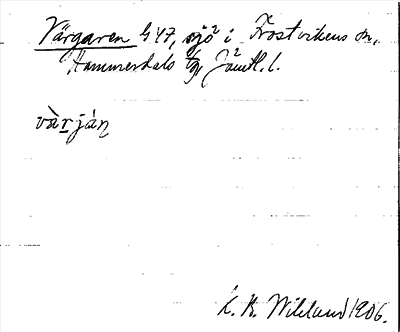 Värgaren G47, sjö i Frostvikens sn,
Hammerdals tg Jämtl. l.
vàrján
K. B. Wiklund 1906.